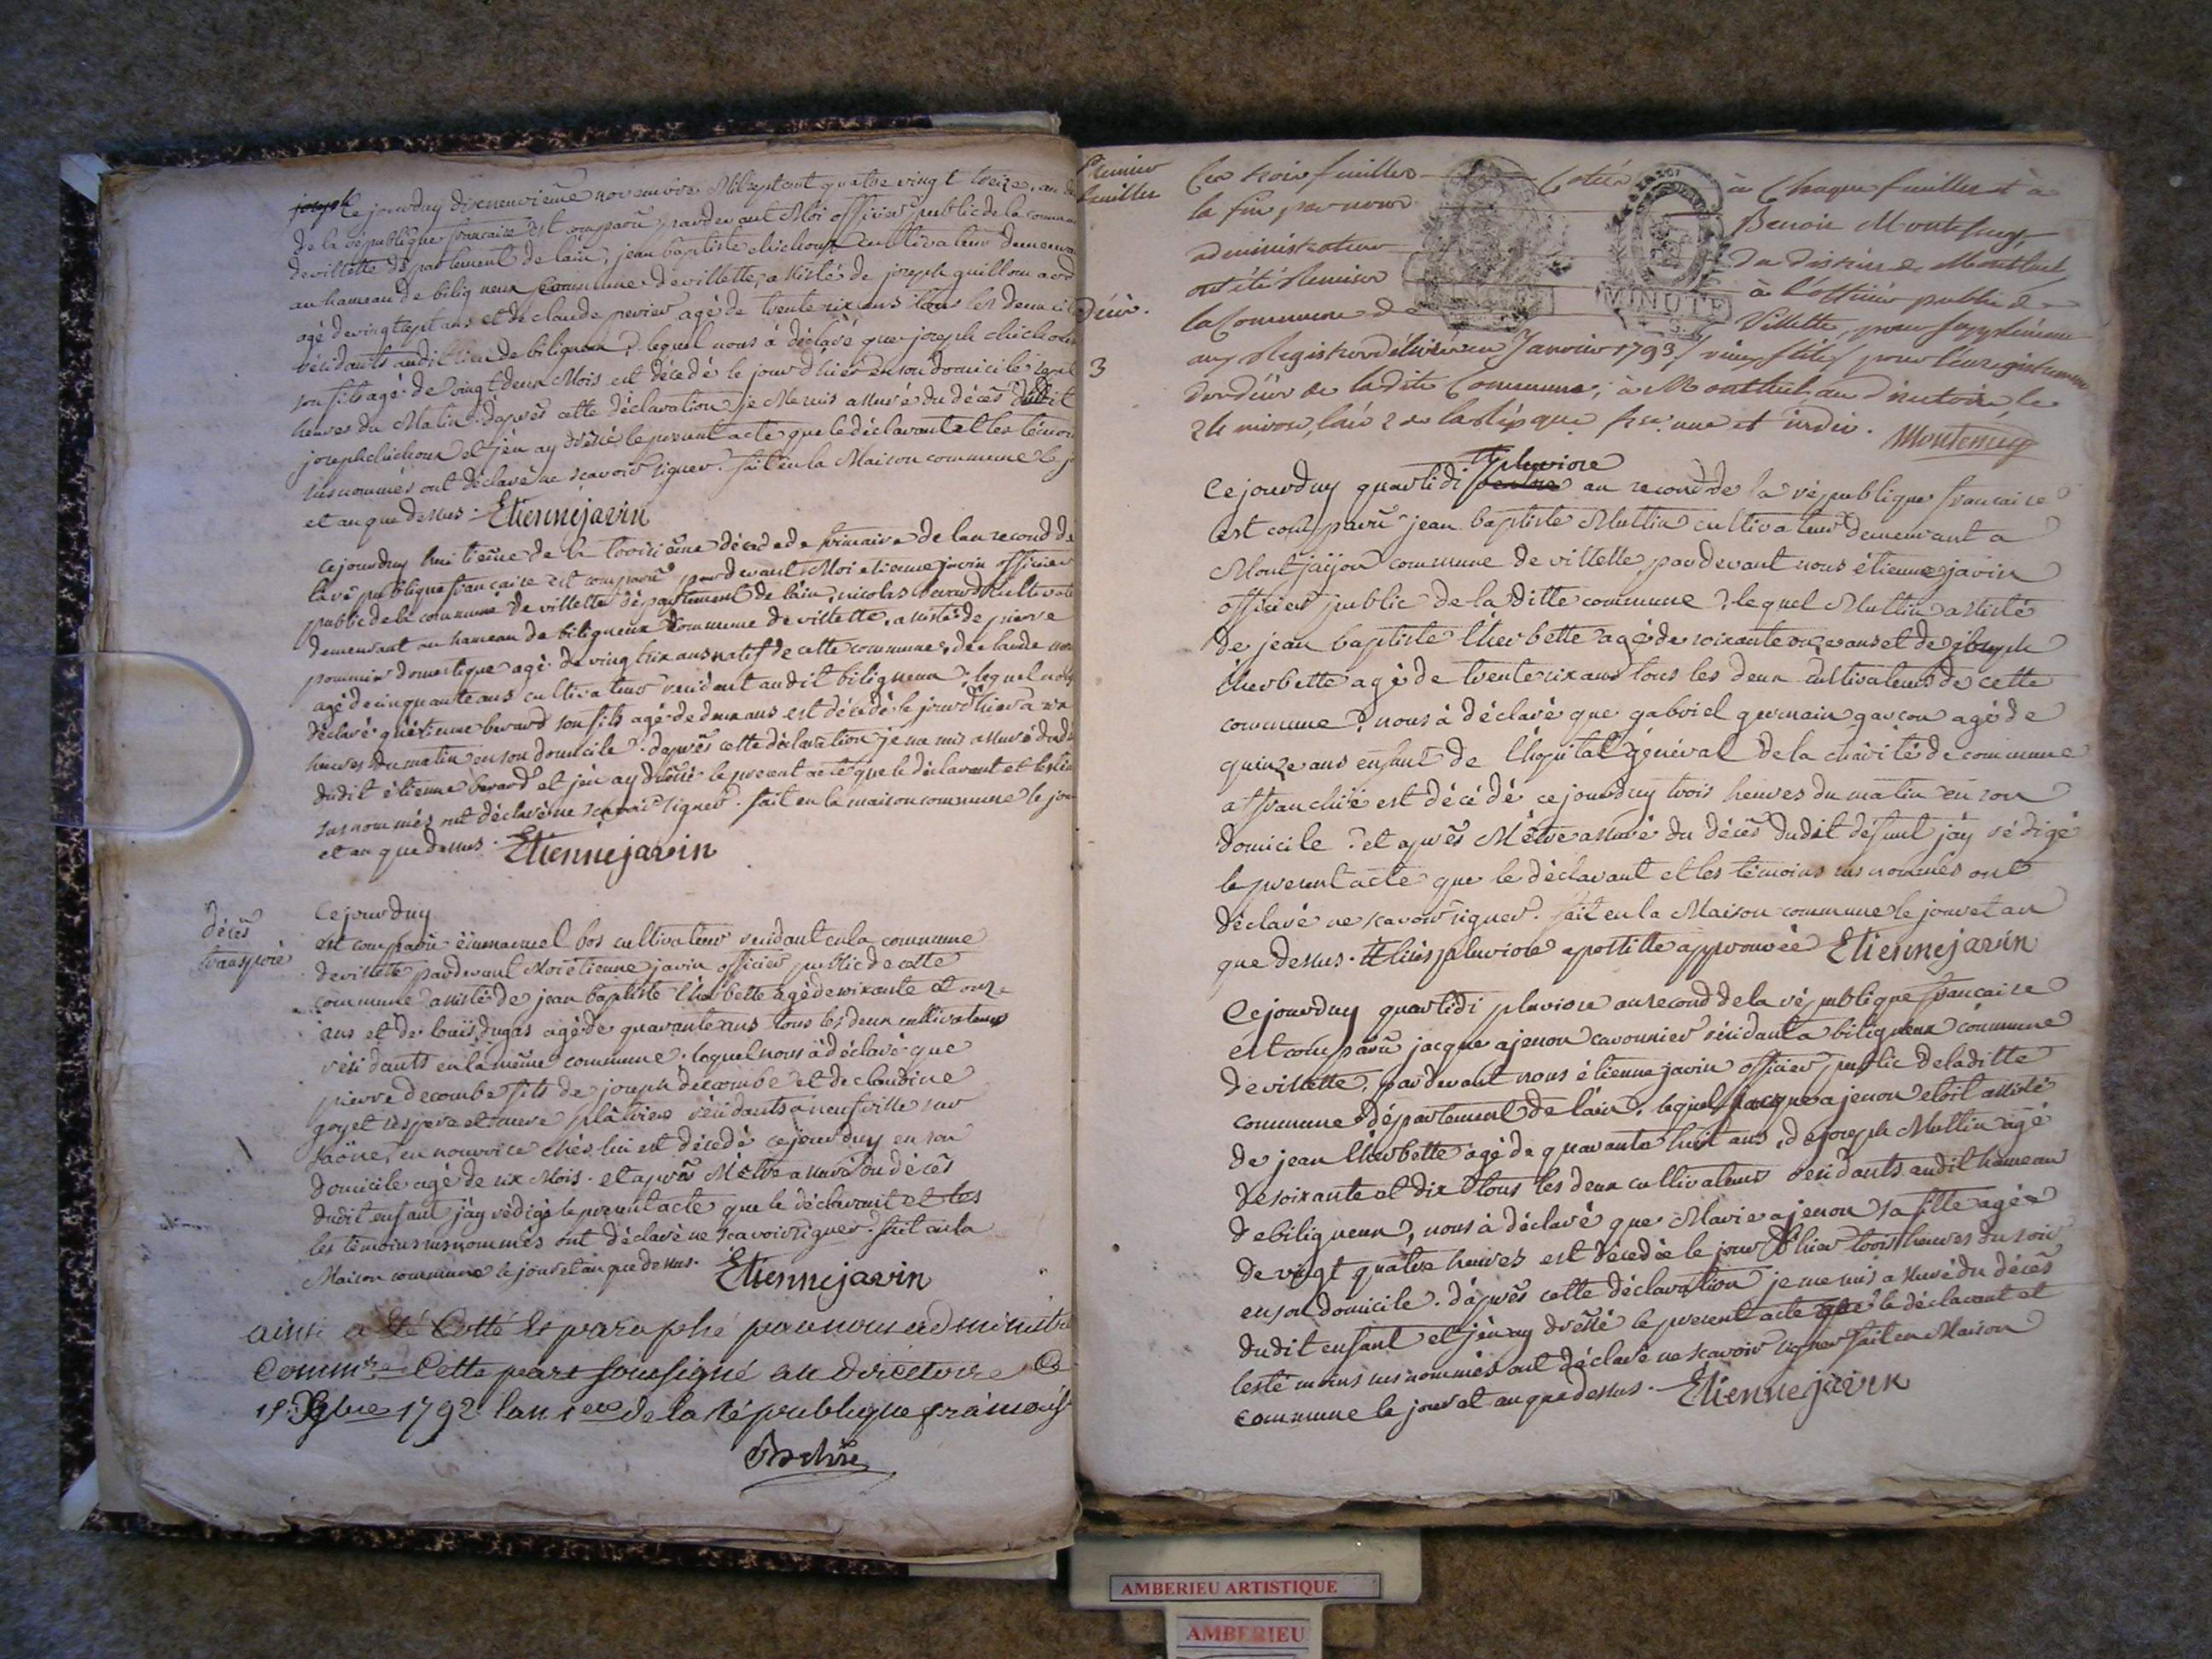 ce jourduy dixneuvieme novembre Mil sept cent quatre vingt treize, an
de la république francaise est comparû pardevant Moi officier public de la commune
de villette département de lain, jean baptiste clichoux cultivateur demeurant
au hameau de biligneux commune de villette, assisté de joseph guillon
agé de vingt sept ans et de claude perier agé de trente six ans tous les deux
résidants audit lieu de biligneux, lequel nous à déclaré que joseph clichoux
son fils agé de vingt deux Mois est décedé le jour d'hier en son domicile
heures du Matin. d'après cette déclaration je Me suis assuré du décès dudit
joseph clichoux et j'en ay dréssé le present acte que le déclarant et les témoins
susnommés ont déclaré ne scavoir signer. fait en la Maison commune le
et an que dessus. Etienne javin
ce jourduy huitieme de la troisième décade de frimaire de l'an second de
la république francaise est comparû pardevant Moi etienne javin officier
public de la commune de villette département de lain, nicolas berard cultivateur
demeurant au hameau de biligneux commune de villette, assisté de pierre
pommier domestique agé de vingt six ans natif de cette commune, de claude
agé de cinquante ans cultivateur residant audit biligneux, lequel nous
déclaré qu'étienne berard son fils agé de deux ans est décédé le jour d'hier a six
heures du matin en son domicile. d'après cette déclaration je me suis assuré du
dudit étienne berard et j'en ay dréssé le present acte que le déclarant et
susnommés ont déclaré ne scavoir signer. fait en la maison commune le jour
et an que dessus. Etienne javin
décès
transposé
Ce jourduy
est comparû emmanuel bos cultivateur residant en la commune
de villette pardevant Moi étienne javin officier public de cette
commune assisté de jean baptiste l'herbette agé de soixante et onze
ans et de louis dugas agé de quarante ans tous les deux cultivateurs
résidants en la même commune. lequel nous à déclaré que
pierre decombe fils de joseph decombe et de claudine
goyet ses pere et mere plâtriers résidants a neufville sur
saône, en nourrice chés lui est décedé ce jourduy en son
domicile agé de six Mois. et après M'etre assuré du décès
dudit enfant j'ay rédigé le present acte que le déclarant et les
les témoins susnommés ont déclaré ne scavoir signer. fait en la
Maison commune le jour et an que dessus. Etienne javin
ainsi a été Cotté & paraphé par nous administr
Comm.re Cette part soussigné au directoire Ce
15 Xbre 1792 l'an 1er de la république francoise
Premier
feuillet
Ces trois feuilles Cotés à Chaque feuillet et à
la fin par nous Benoit Montessuy
administrateur du district de Montluel
ont été Remises à l'officier public de
la Commune de Villette, pour supplément
aux Registres délivrés en Janvier 1793 / vieux stile / pour l'enregistrement
des décès de ladite Commune, à Montluel, au directoire, le
24 nivose, l'an 2 de la République frse. une et indiv. Montessuy
MINUTE
décès.
3
pluviose
Ce jourduy quartidi an second de la république francaise
est comparû jean baptiste Muttin cultivateur demeurant a
Montjayon commune de villette, pardevant nous étienne javin
officier public de la ditte commune, lequel Muttin assisté
de jean baptiste l'herbette agé de soixante onze ans et de joseph
l'herbette agé de trente six ans tous les deux cultivateurs de cette
commune, nous à déclaré que gabriel germain garcon agé de
quinze ans enfant de l'hopital général de la charité de commune
affranchie est décédé ce jourduy trois heures du matin en son
domicile, et après M'être assuré du décès dudit défunt j'ay rédigé
le present acte que le déclarant et les témoins susnommés ont
déclaré ne scavoir signer. fait en la Maison commune le jour et an
que dessus. pluviose apostille approuvée Etienne javin
Ce jourduy quartidi pluviose an second de la république francaise
est comparû jacque ajenon résidant a biligneux commune
de villette, pardevant nous étienne javin officier public de la ditte
commune département de l'ain, lequel jacque ajenon étoit assisté
de jean l'herbette agé de quarante huit ans, de joseph Muttin agé
de soixante et dix tous les deux cultivateurs residants audit hameau
de biligneux, nous à déclaré que Marie ajenon sa fille agée
de vingt quatre heures est décedée le jour d'hier trois heures du soir
en son domicile. d'après cette déclaration je me suis assuré du décès
dudit enfant et j'en ay dréssé le present acte que le déclarant et
les témoins susnommés ont déclaré ne scavoir signer fait en Maison
commune le jour et an que dessus. Etienne javin
AMBERIEU ARTISTIQUE
AMBERIEU